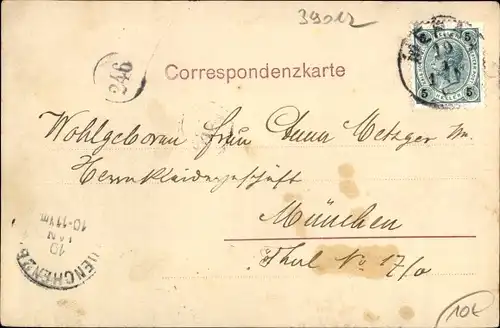 39012
246
Correspondenzkarte
5 5
HELLER
Wohlgeboren Frau Anna Metzger
Herrenkleidergeschäft
München
Thal No 17/0
MUENCHEN 2 B.
10
JAN
10-11 Vm.
10€